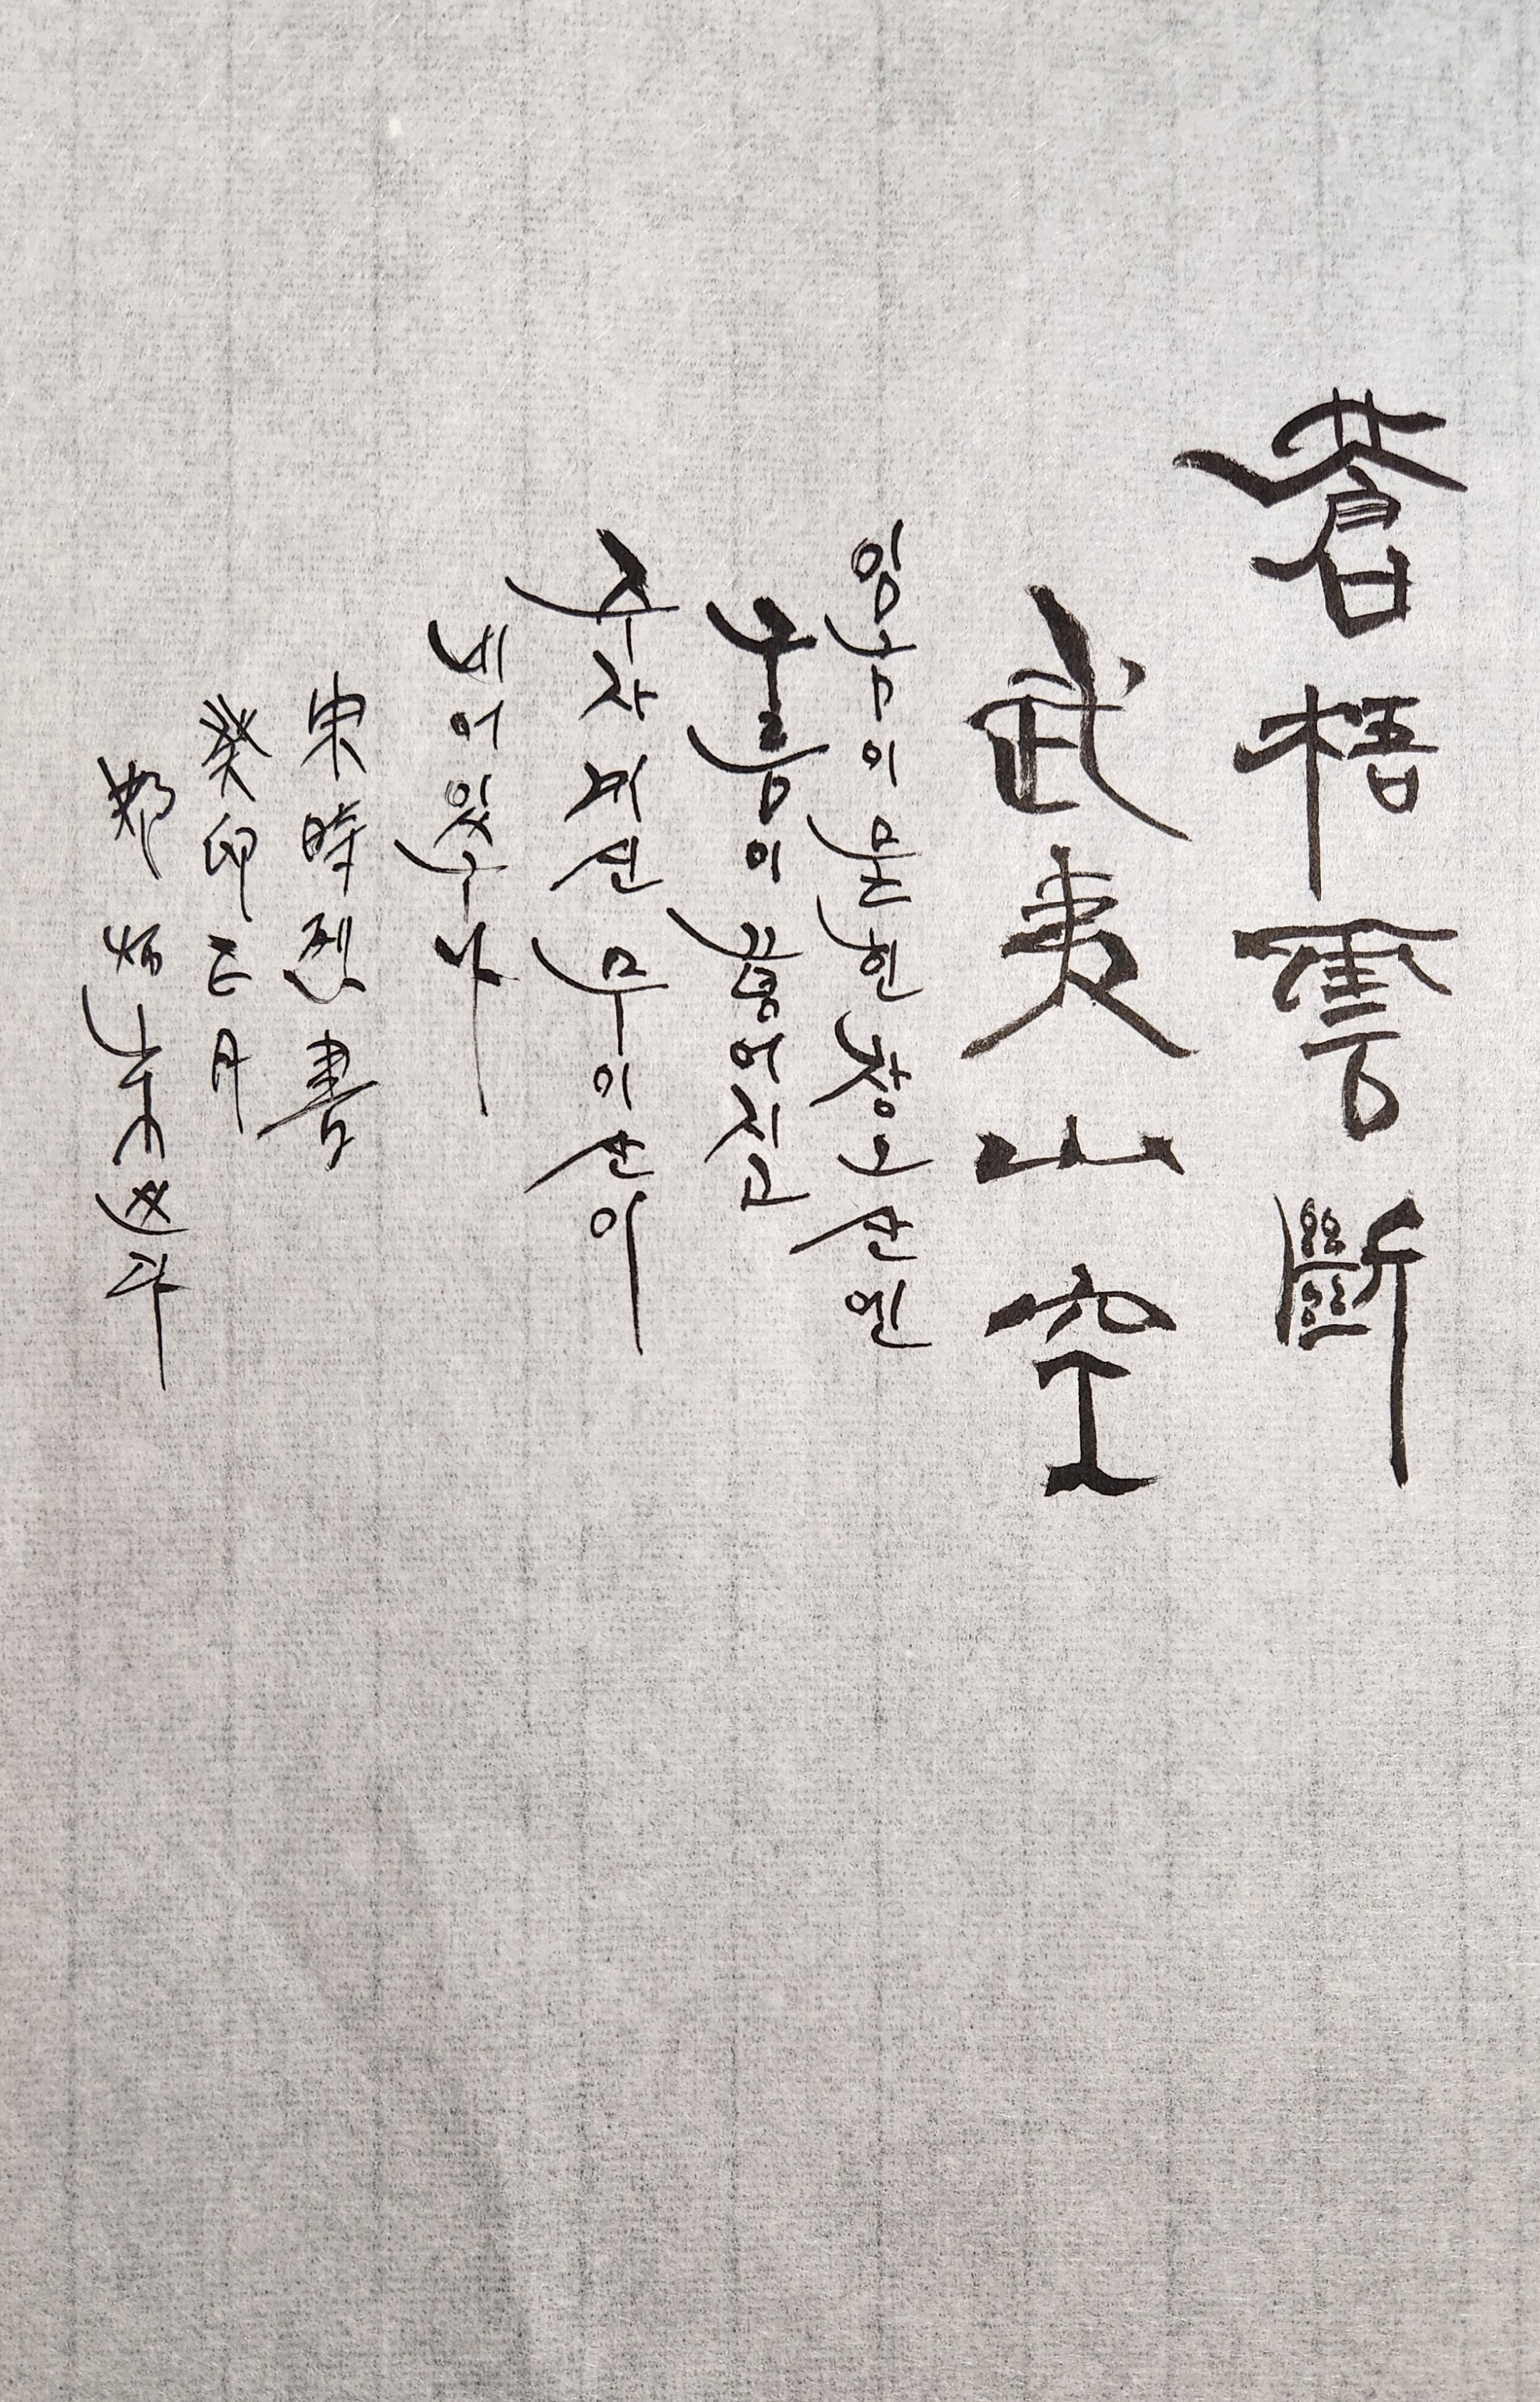 蒼梧雲斷
武夷山空
임금이 묻힌 창오산엔
구름이 끊어지고
주자 계신 무이산이
비어있구나
宋時烈書
癸卯正月